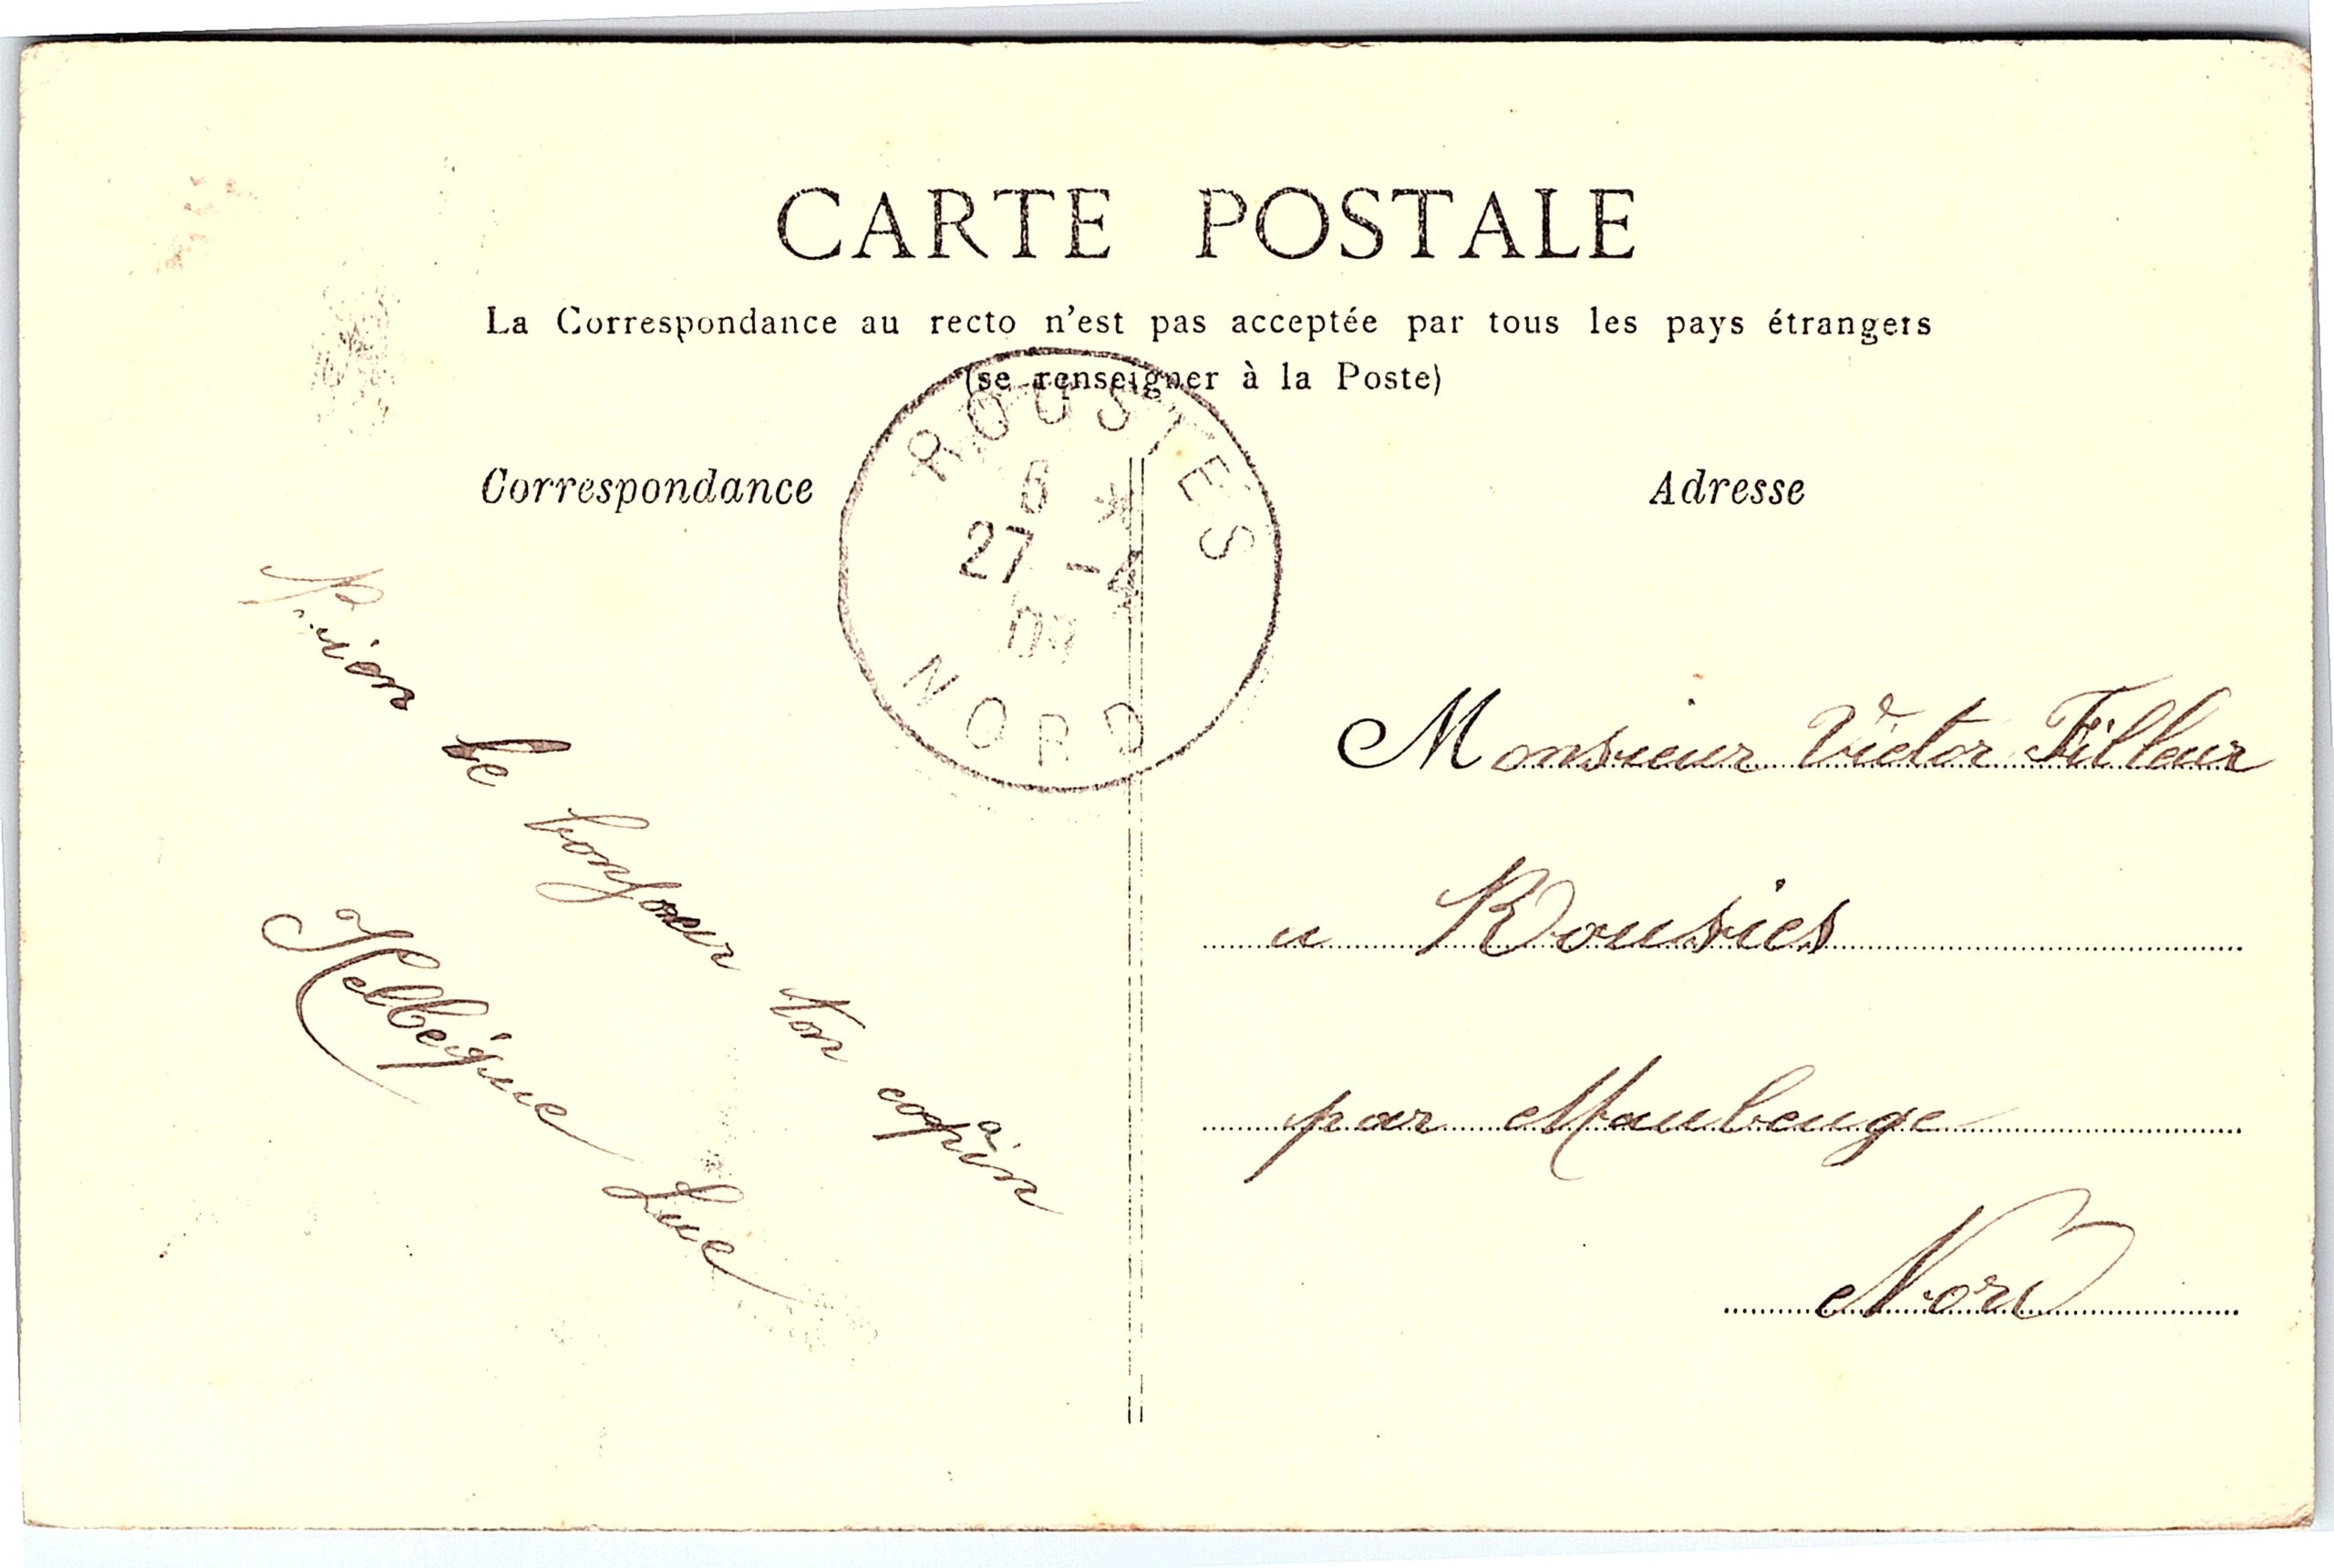 CARTE POSTALE
La Correspondance au recto n'est pas acceptée par tous les pays étrangers
(se renseigner à la Poste)
Correspondance
Adresse
ROUSIES
6 *
27 - 4
09
NORD
le bonjour ton copain
Luc
Monsieur Victor Filleur
a Rousies
par Maubeuge
Nord